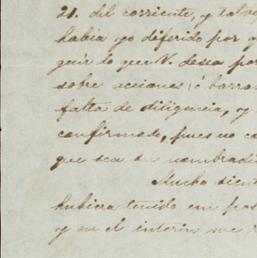 21. del corriente, y
habia yo diferido por
guir lo que V. desea por
sobre acciones ó barra
falta de diligencia, y
confirmado, pues no co
que sea su nombradi
Mucho sient
hubiera tenido em pas
y en el interin me